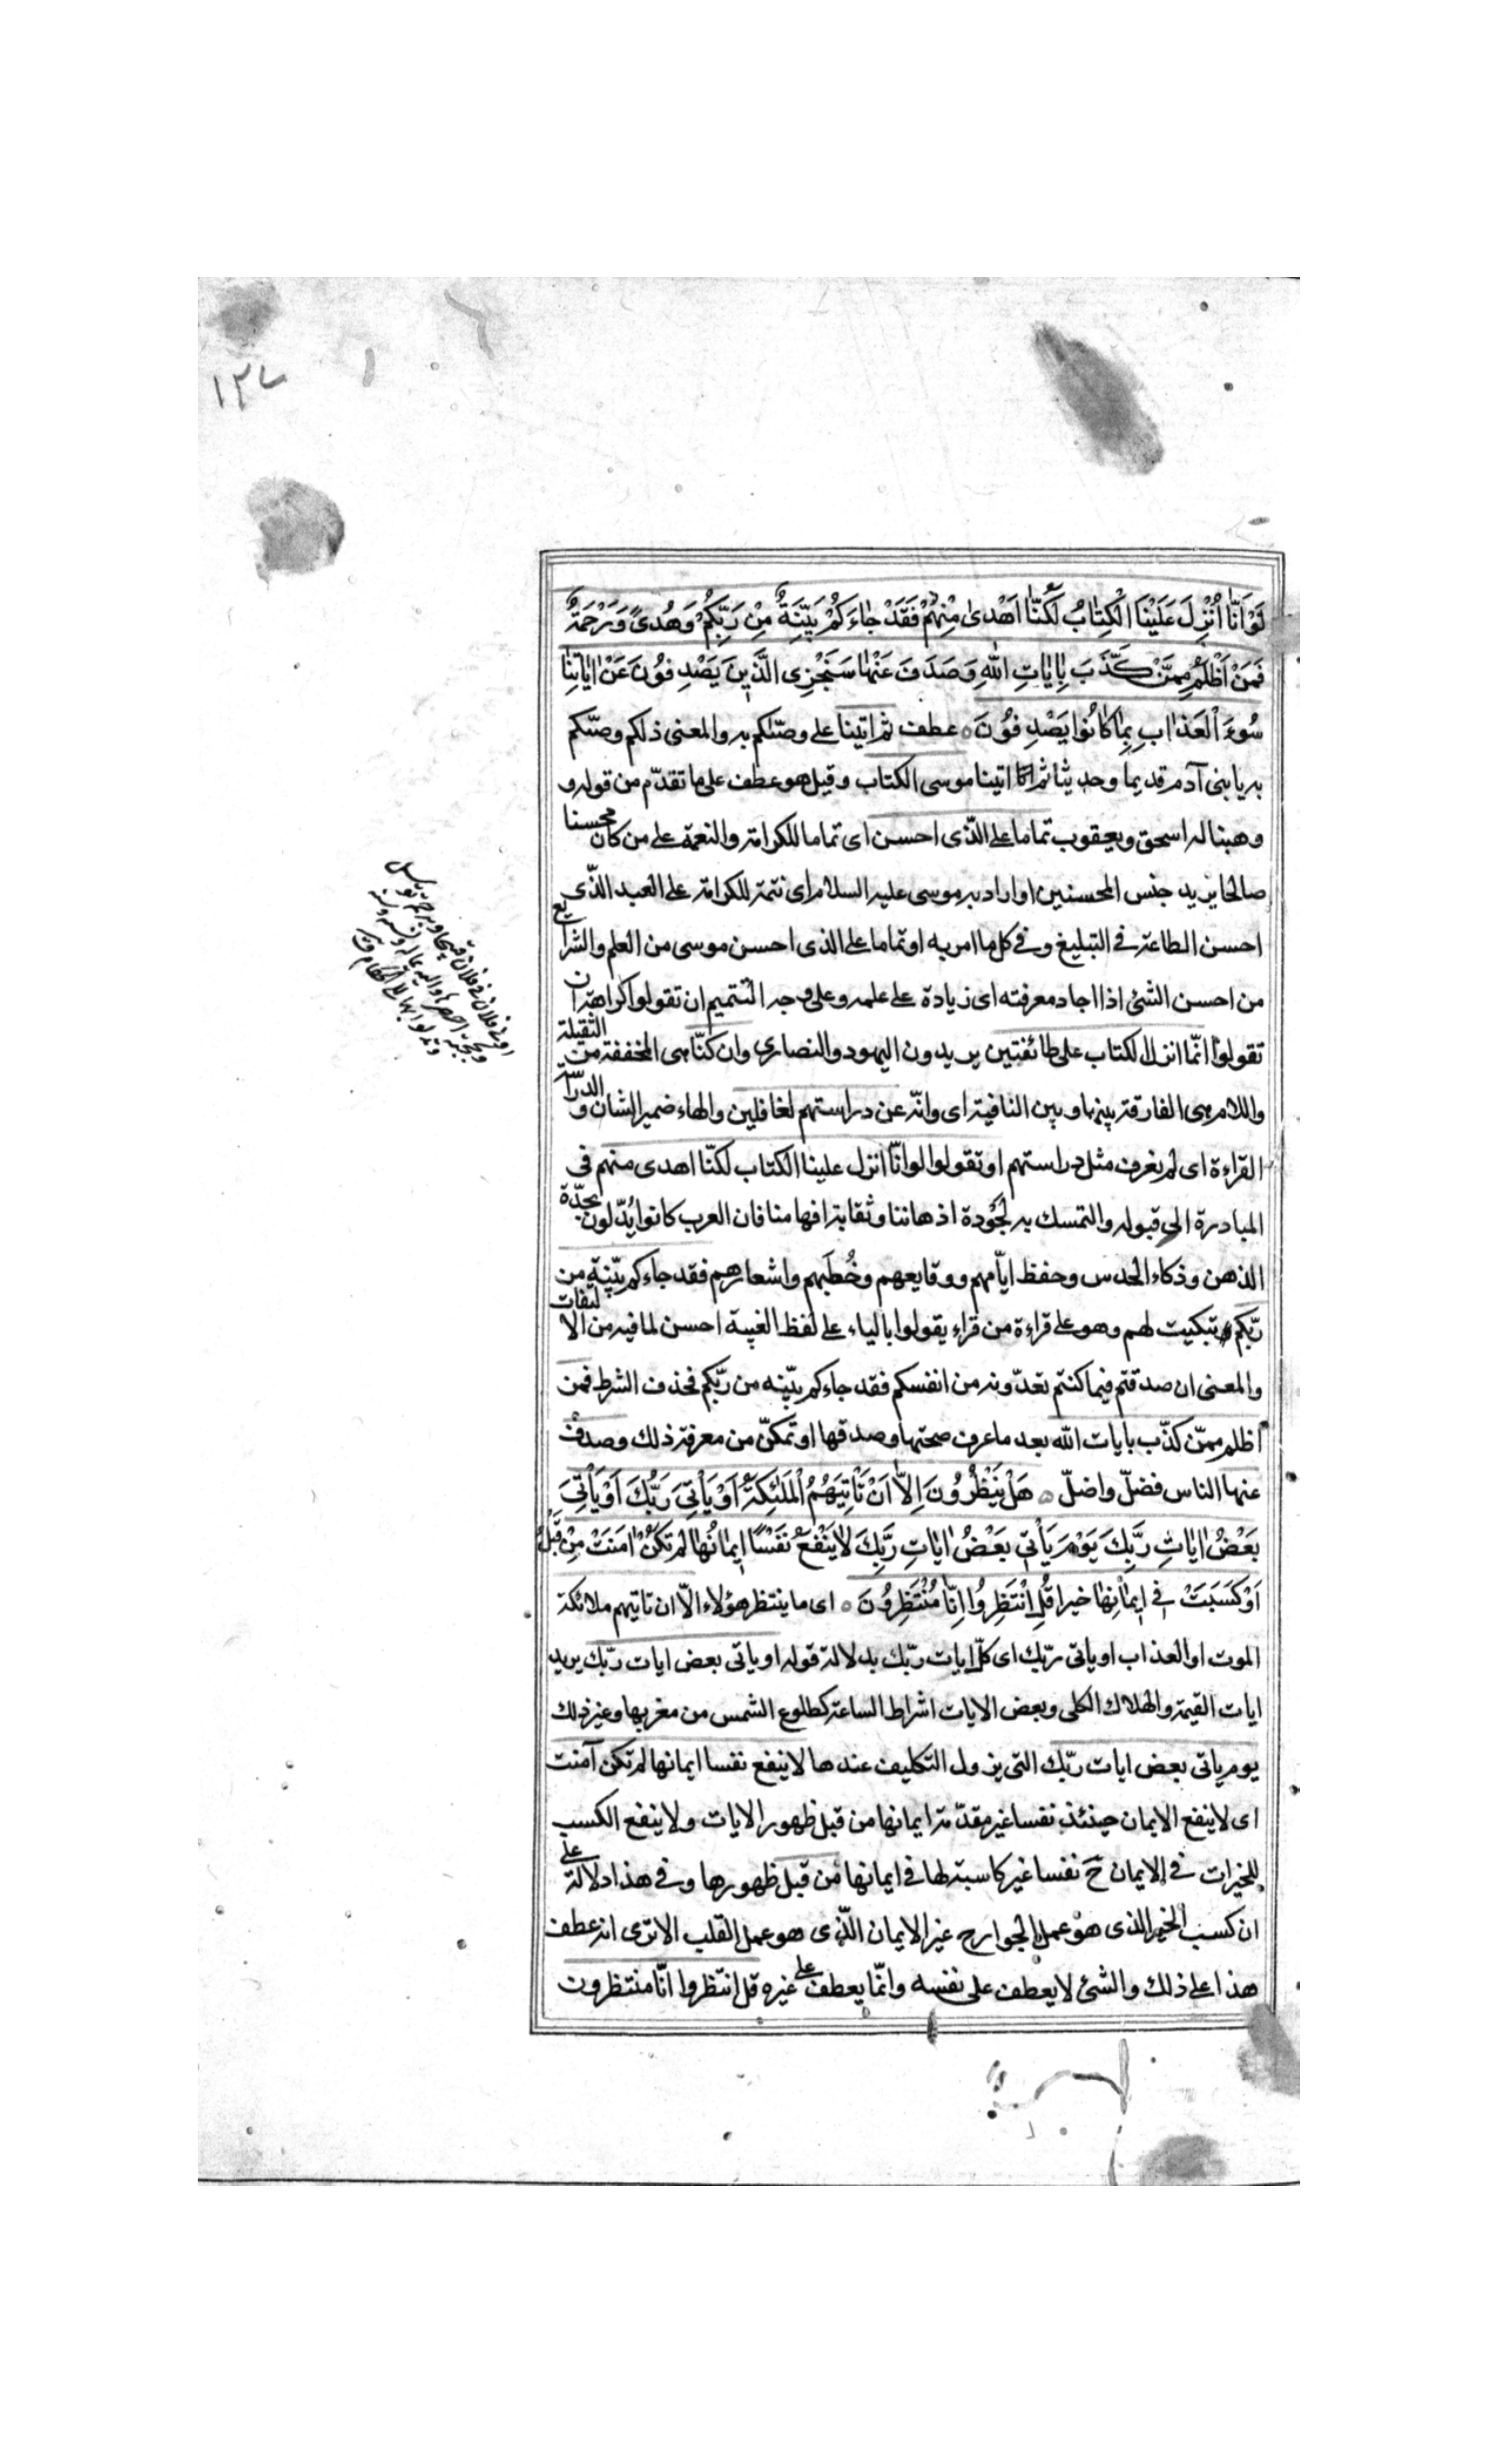 لَوْ اَنَّا اُنْزِلَ عَلَيْنَا الْكِتٰابُ لَكُنّٰا اَهْدىٰ مِنْهُمْ فَقَدْ جٰاءَكُمْ بَيِّنَةٌ مِنْ رَبِّكُمْ وَهُدىً وَرَحْمَةٌ
فَمَنْ اَظْلَمُ مِمَّنْ كَذَّبَ بِاٰيٰاتِ اللهِ وَصَدَفَ عَنْهٰا سَنَجْزِى الَّذِينَ يَصْدِفُونَ عَنْ اٰيٰاتِنٰا
سُوءَ الْعَذٰابِ بِمٰا كٰانُوا يَصْدِفُونَ ه عطف ثم اتينا على وصّيكم به والمعنى ذلكم وصّيكم
به يا بنى آدم قديما وحديثا ثم انا اتينا موسى الكتاب وقيل هو عطف على ما تقدّم من قوله و
وهبنا له اسحق ويعقوب تماما على الّذى احسن اى تماما للكرامة والنعمة على من كان محسنا
صالحا يريد جنس المحسنين او اراد به موسى عليه السلام اى تتمة للكرامة على العبد الّذى
احسن الطاعة فى التبليغ وفى كل ما امر به او تماما على الذى احسن موسى من العلم والشرايع
من احسن الشئ اذا اجاد معرفته اى زيادة على علمه وعلى وجه التتميم ان تقولوا كراهة ان
تقولوا انّما انزل الكتاب على طائفتين يريدون اليهود والنصارى وان كنّا هى المخففة من الثقيلة
واللام هى الفارقة بينها وبين النافية اى وانّه عن دراستهم لغافلين والهاء ضمير الشان والدراسة
القراءة اى لم نعرف مثل دراستهم او تقولوا لو انّا انزل علينا الكتاب لكنّا اهدى منهم فى
المبادرة الى قبوله والتمسك به لجُودة اذهاننا وثقابة افهامنا فان العرب كانوا يُدّلون بحدّة
الذهن وذكاء الحدس وحفظ ايّامهم ووقايعهم وخُطَبهم واشعارهم فقد جاءكم بيّنة من
ربّكم تبكيت لهم وهو على قراءة من قراء يقولوا بالياء على لفظ الغيبة احسن لما فيه من الالتفات
والمعنى ان صدقتم فيما كنتم تعدّونه من انفسكم فقد جاءكم بيّنه من ربّكم فحذف الشرط فمن
اظلم ممّن كذّب بايات الله بعد ما عرف صحتها وصدقها او تمكّن من معرفة ذلك وصدف
عنها الناس فضلّ واضلّ ه هَلْ يَنْظُرُونَ اِلاّٰ اَنْ تَاْتِيَهُمُ الْمَلٰئِكَةُ اَوْ يَاْتِىَ رَبُّكَ اَوْ يَاْتِىَ
بَعْضُ اٰيٰاتِ رَبِّكَ يَوْمَ يَاْتى بَعْضُ اٰيٰاتِ رَبِّكَ لاٰ يَنْفَعُ نَفْسًا اِيمٰانُهٰا لَمْ تَكُنْ اٰمَنَتْ مِنْ قَبْلُ
اَوْ كَسَبَتْ فى اِيمٰانِهٰا خيرا قُلِ انْتَظِرُوا اِنّٰا مُنْتَظِرُونَ ه اى ما ينتظر هؤلاء الّا ان تاتيهم ملائكة
الموت او العذاب او ياتى ربّك اى كلّ ايات ربّك بدلالة قوله او ياتى بعض ايات ربّك يريد
ايات القيمة والهلاك الكلى وبعض الايات اشراط الساعة كطلوع الشمس من مغربها وغير ذلك
يوم ياتى بعض ايات ربّك التى يزول التكليف عندها لا ينفع نفسا ايمانها لم تكن آمنت
اى لا ينفع الايمان حينئذ نفسا غير مقدّمة ايمانها من قبل ظهور الايات ولا ينفع الكسب
للخيرات فى الايمان ح نفسا غير كاسبة لها فى ايمانها من قبل ظهورها وفى هذا دلالة على
ان كسب الخير الذى هو عمل الجوارح غير الايمان الّذى هو عمل القلب الا ترى انه عطف
هذا على ذلك والشئ لا يعطف على نفسه وانّما يعطف على غيره قل انتظروا انّا منتظرون